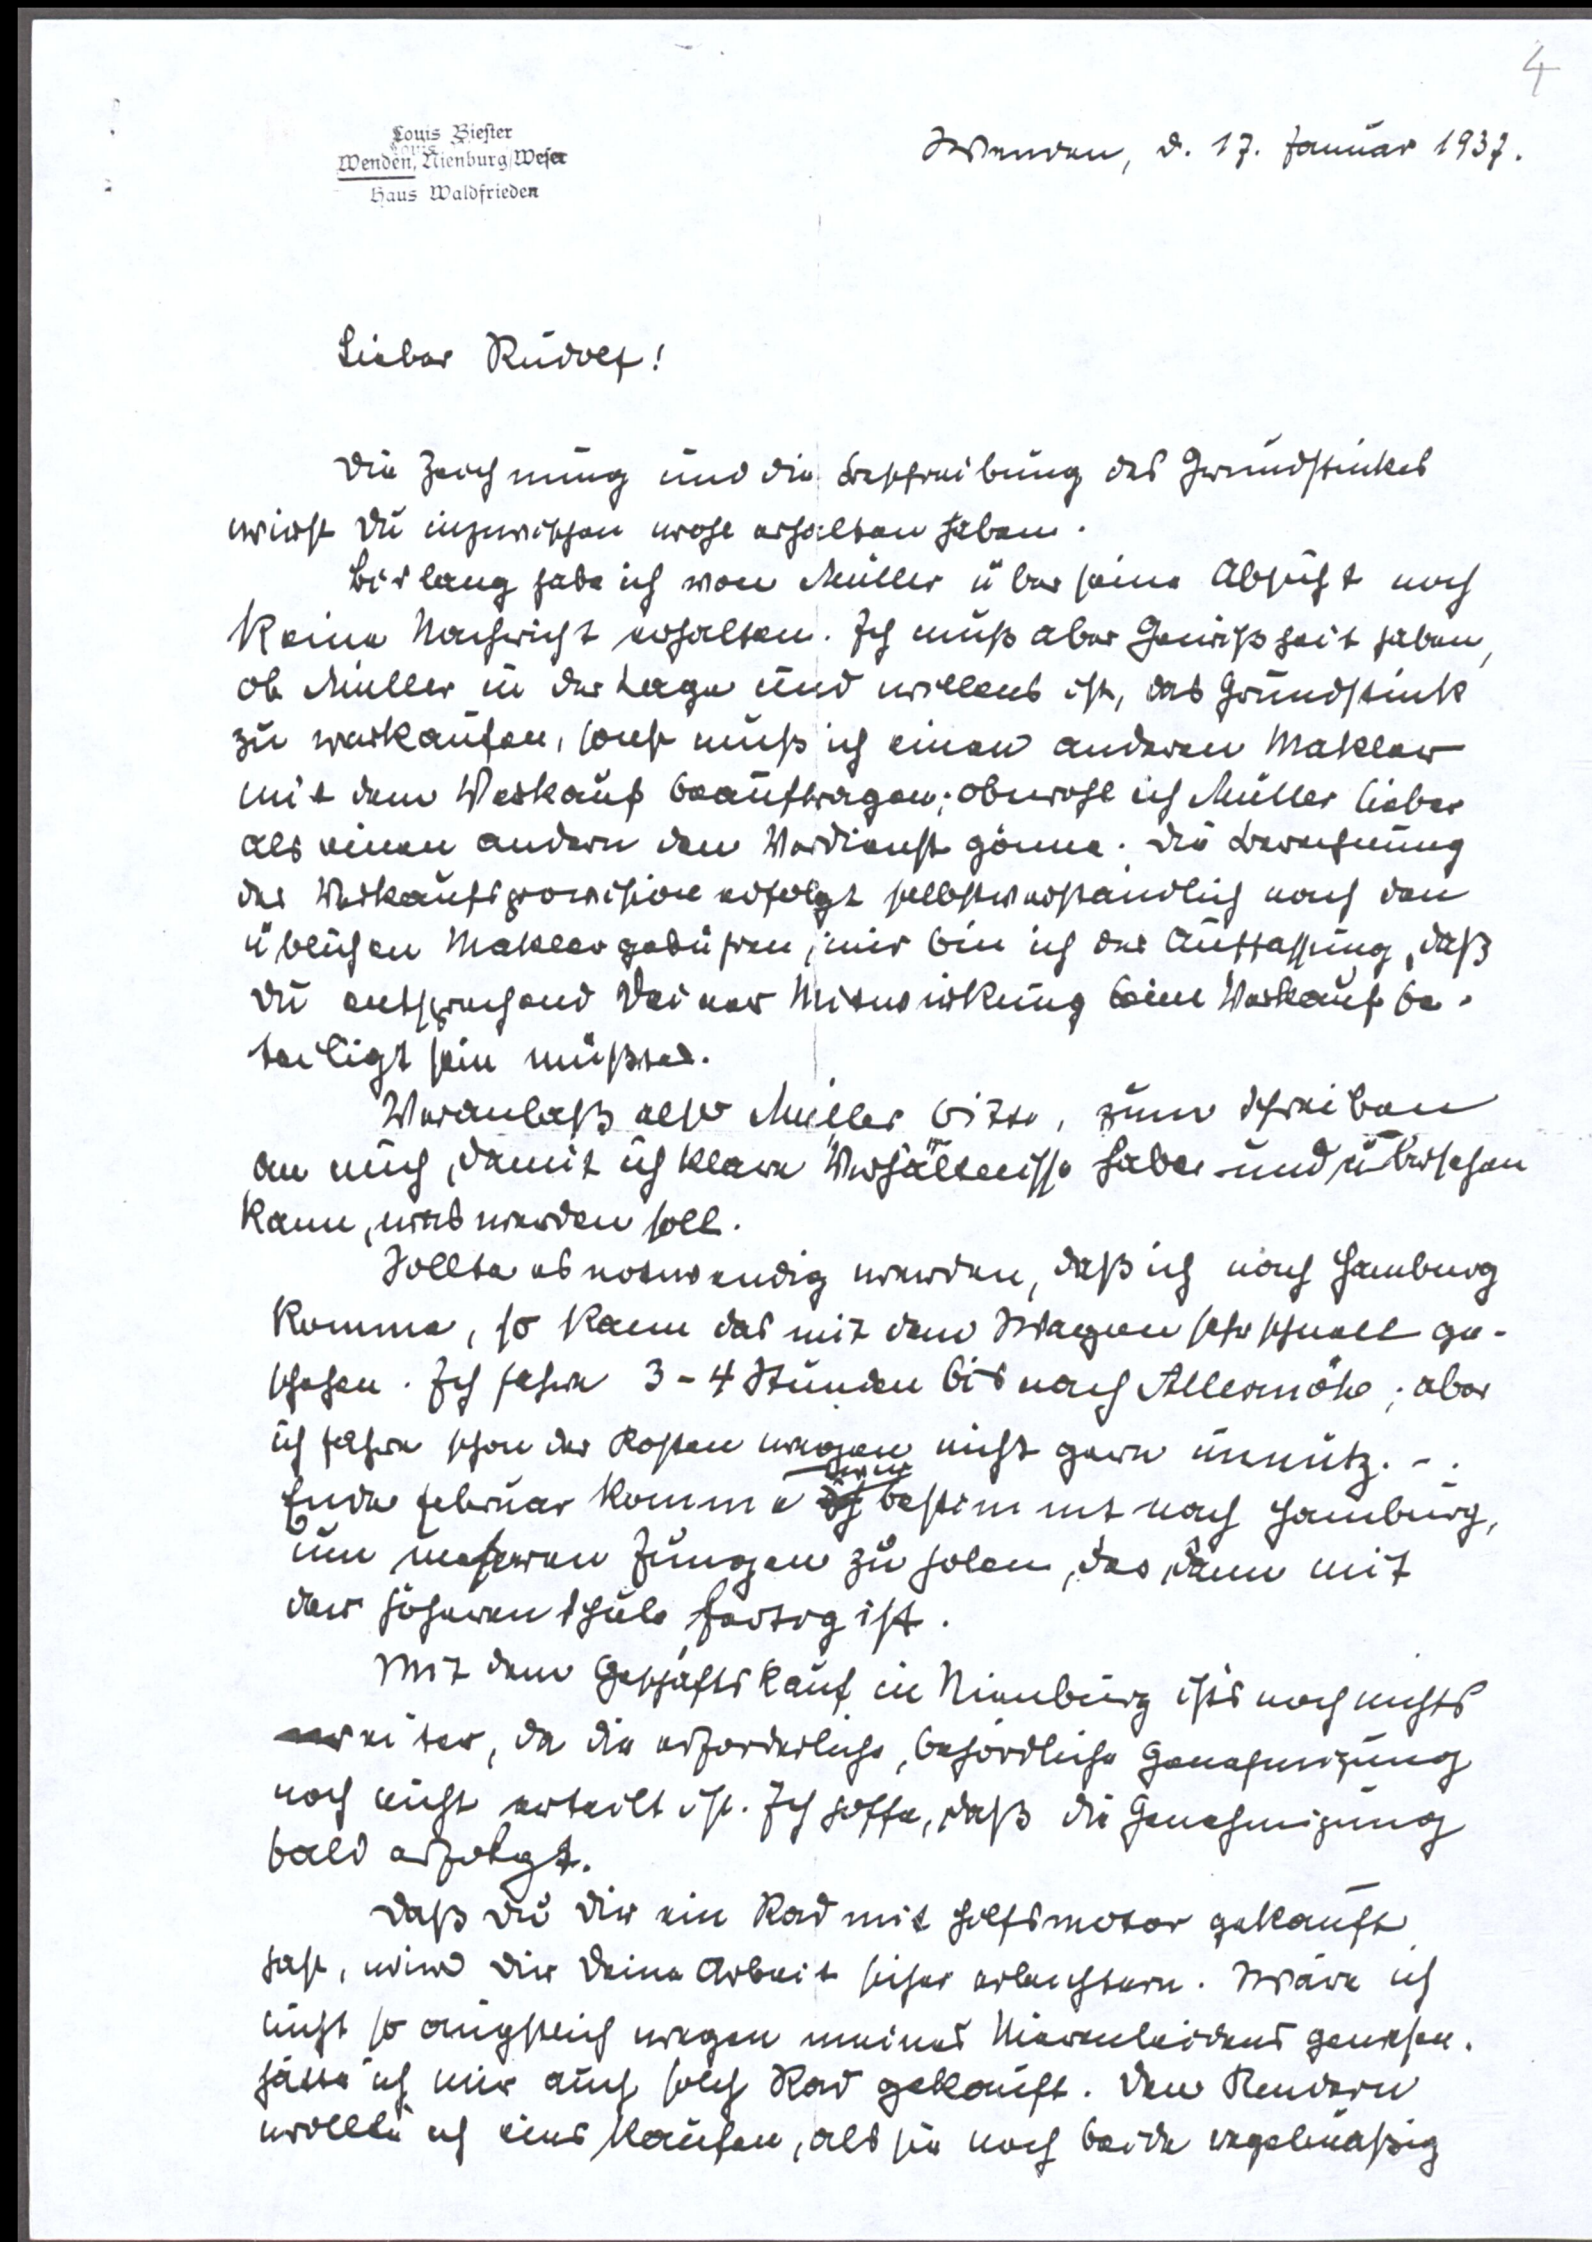 4
Louis Biester
Wenden, Nienburg/Weser
Haus Waldfrieden
Wenden, d. 17. Januar 1937.
Lieber Rudolf!
Die Zeichnung und die Beschreibung des Grundstückes
wirst Du inzwischen wohl erhalten haben.
Bislang habe ich von Müller über seine Absicht noch
keine Nachricht erhalten. Ich muß aber Gewißheit haben,
ob Müller in der Lage und willens ist, das Grundstück
zu verkaufen, sonst muß ich einen anderen Makler
mit dem Verkauf beauftragen; obwohl ich Müller lieber
als einen andern den Verdienst gönne. Die Berechnung
der Verkaufsprovision erfolgt selbstverständlich nach den
üblichen Maklergebühren, nur bin ich der Auffassung, daß
Du entsprechend Deiner Mitwirkung beim Verkauf be-
teiligt sein müßtest.
Veranlaß also Müller bitte, zum Schreiben
an mich, damit ich klare Verhältnisse habe und übersehen
kann, was werden soll.
Sollte es notwendig werden, daß ich nach Hamburg
komme, so kann das mit dem Wagen sehr schnell ge-
schehen. Ich fahre 3-4 Stunden bis nach Allermöhe; aber
ich fahre schon der Kosten wegen nicht gern unnütz. -.
Ende Februar komme bestimmt nach Hamburg,
um unseren Jungen zu holen, der dann mit
der höheren Schule fertig ist.
Mit dem Geschäftskauf in Nienburg ists noch nichts
weiter, da die erforderliche, behördliche Genehmigung
noch nicht erteilt ist. Ich hoffe, daß die Genehmigung
bald erfolgt.
Daß Du Dir ein Rad mit Hilfsmotor gekauft
hast, wird Dir Deine Arbeit sicher erleichtern. Wäre ich
nicht so ängstlich wegen meines Nierenleidens gewesen.
hätte ich mir auch solch Rad gekauft. Den Kindern
wollte ich eins kaufen, als sie noch beide regelmäßig